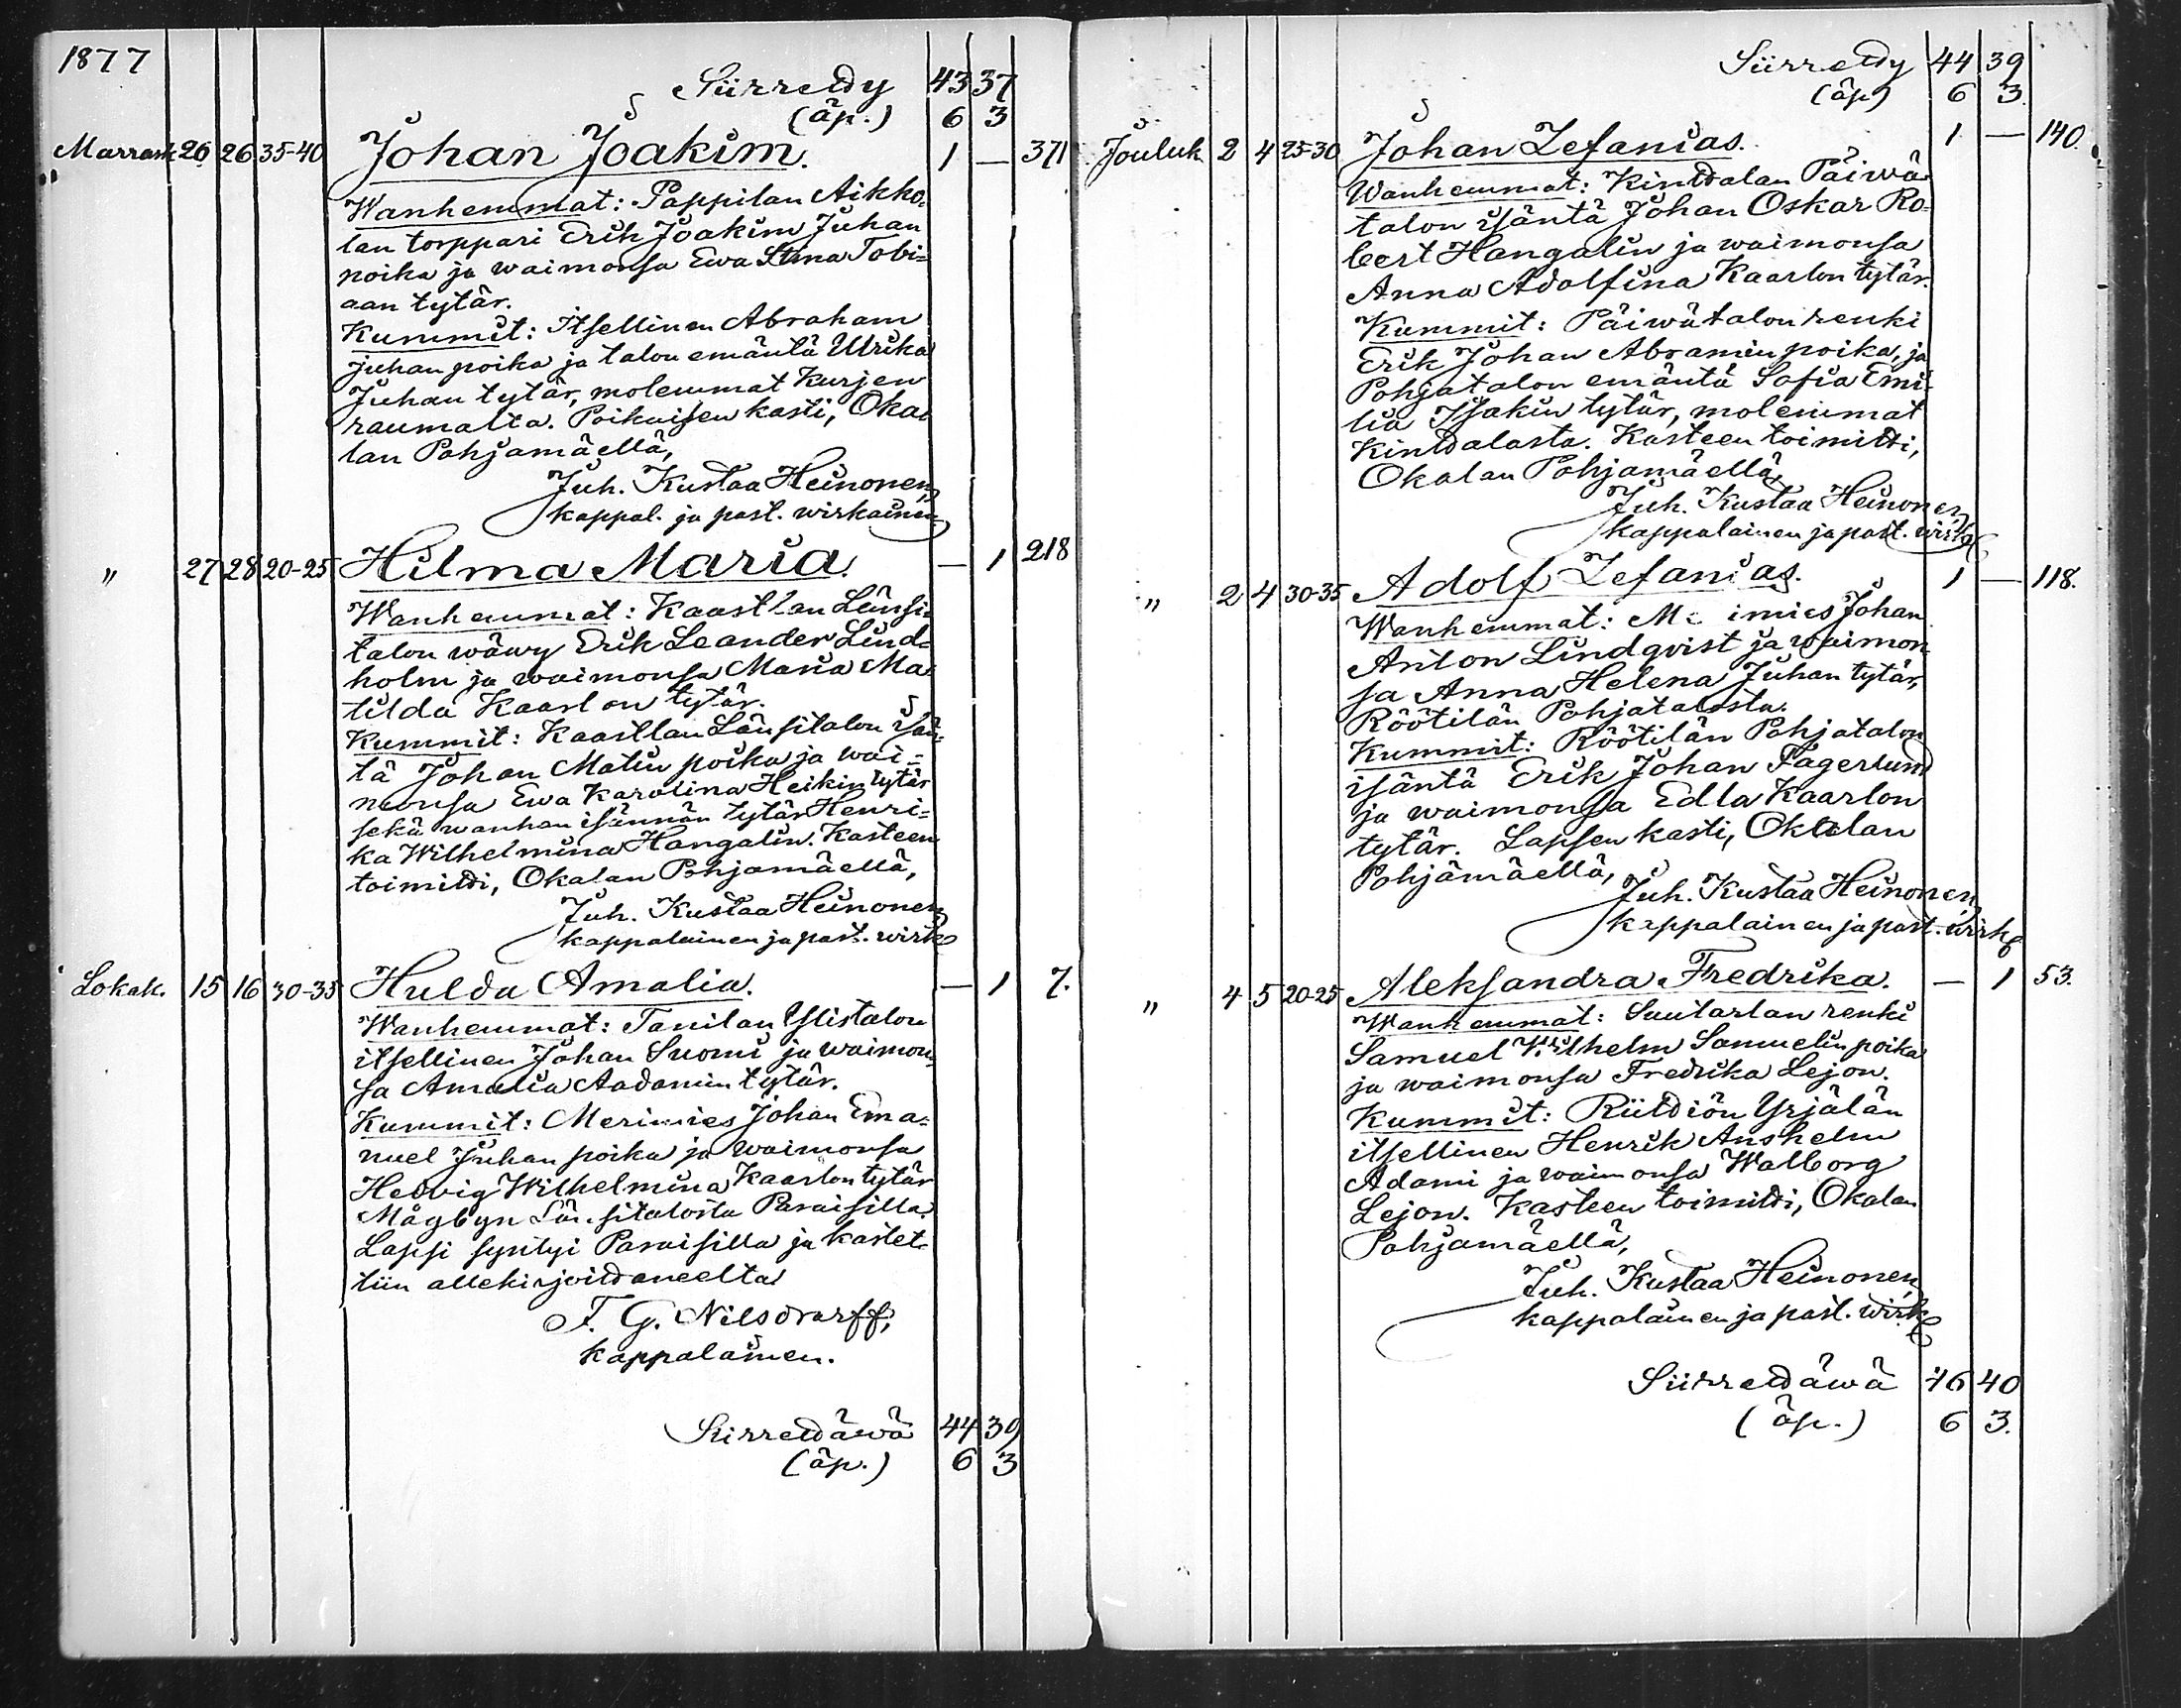 1877
Siirretty 43 37
(äp.) 6 3
Marrask. 26 26 35-40 Johan Joakim. 1 — 371
Wanhemmat: Pappilan Aikko-
lan torppari Erik Joakim Juhan
poika ja waimonsa Ewa Stina Tobi=
aan tytär.
Kummit: Itsellinen Abraham
Juhan poika ja talon emäntä Ulrika
Juhan tytär, molemmat Kurjen
raumalta. Poikaisen kasti, Oka-
lan Pohjamäellä,
Juh. Kustaa Heinonen,
kappal. ja past. wirkainen
" 27 28 20-25 Hilma Maria. — 1 218
Wanhemmat: Kaastlan Länsi-
talon wäwy Erik Leander Lind=
holm ja waimonsa Maria Ma-
tilda Kaarlon tytär.
Kummit: Kaastlan Länsitalon isän-
tä Johan Matin poika ja wai=
monsa Ewa Karolina Heikin tytär
sekä wanhan isännän tytär Henri=
ka Wilhelmina Hangalin. Kasteen
toimitti, Okalan Pohjamäellä,
Juh. Kustaa Heinonen
kappalainen ja past. wirk
Lokak. 15 16 30-35 Hulda Amalia. — 1 7.
Wanhemmat: Tanilan Ylistalon
itsellinen Johan Suomi ja waimon-
sa Amalia Aadamin tytär.
Kummit: Merimies Johan Ema=
nuel Juhan poika ja waimonsa
Hedvig Wilhelmina Kaarlon tytär
Mågbyn Länsitalosta Paraisilla.
Lapsi syntyi Paraisilla ja kastet-
tiin allekirjoittaneelta
F. G. Nilsdrorff,
kappalainen.
Siirrettäwä 44 39
(äp.) 6 3
Siirretty 44 39
(äp) 6 3.
Jouluk. 2 4 25-30 Johan Zefanias. 1 — 140.
Wanhemmat: Kinttalan Päiwä-
talon isäntä Johan Oskar Ro-
bert Hangalin ja waimonsa
Anna Adolfina Kaarlon tytär.
Kummit: Päiwätalon renki
Erik Johan Abramin poika, ja
Pohjatalon emäntä Sofia Emi-
lia Isakin tytär, molemmat
Kinttalasta. Kasteen toimitti,
Okalan Pohjamäellä,
Juh. Kustaa Heinonen,
kappalainen ja past. wirk
" 2 4 30-35 Adolf Zefanias. 1 — 118.
Wanhemmat: Me imies Johan
Anton Lindqvist ja waimon-
sa Anna Helena Juhan tytär,
Röötilän Pohjatalosta.
Kummit: Röötilän Pohjatalon
isäntä Erik Johan Fagerlund
ja waimonsa Edla Kaarlon
tytär. Lapsen kasti, Okalan
Pohjämäellä,
Juh. Kustaa Heinonen,
kappalainen ja past. wirk
" 4 5 20-25 Aleksandra Fredrika. — 1 53.
Wanhemmat: Suutarlan renki
Samuel Wilhelm Samuelin poika
ja waimonsa Fredrika Lejon.
Kummit: Riittiön Yrjälän
itsellinen Henrik Anshelm
Adami ja waimonsa Walborg
Lejon. Kasteen toimitti, Okalan
Pohjamäellä,
Juh. Kustaa Heinonen,
kappalainen ja past. wirk
Siirrettäwä 46 40
(äp.) 6 3.